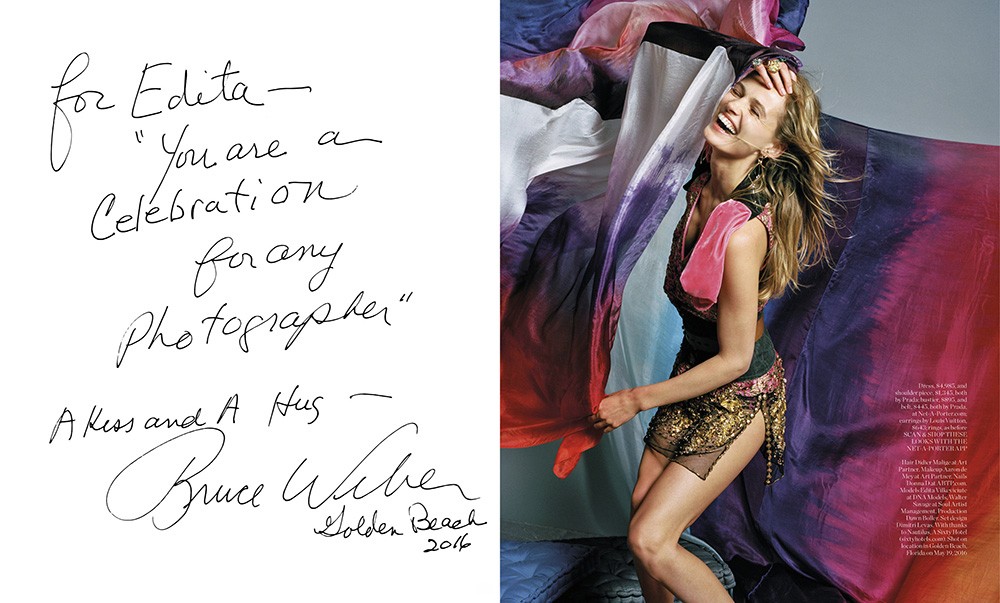 for Edita —
"You are a
Celebration
for any
Photographer"
A Kiss and A Hug —
Bruce Weber
Golden Beach
2016
Dress, $4,985, and
shoulder piece, $1,345, both
by Prada; bustier, $895, and
belt, $445, both by Prada,
at Net-A-Porter.com;
earrings by Louis Vuitton,
$645; rings, as before
SCAN & SHOP THESE
LOOKS WITH THE
NET-A-PORTER APP
Hair Didier Malige at Art
Partner. Makeup Aaron de
Mey at Art Partner. Nails
Donna D at ARTP.com.
Models Edita Vilkeviciute
at DNA Models, Walter
Savage at Soul Artist
Management. Production
Dawn Boller. Set design
Dimitri Levas. With thanks
to Nautilus, A Sixty Hotel
(sixtyhotels.com). Shot on
location in Golden Beach,
Florida on May 19, 2016